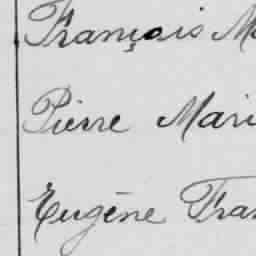 François M
Pierre Mari
Eugène Fran